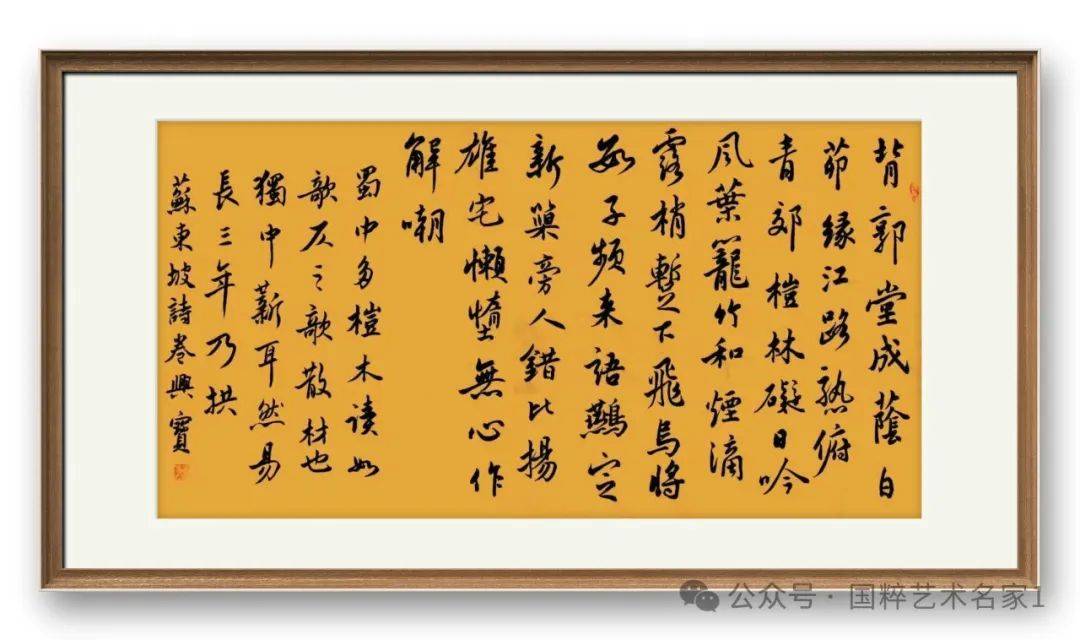 背郭堂成蔭白
茆緣江路熟俯
青郊榿林礙日吟
風葉籠竹和煙滴
露梢暫下飛烏將
數子頻来語鷰定
新巢旁人錯比揚
雄宅懶惰無心作
解嘲
蜀中多榿木读如
欹仄之欹散材也
獨中薪耳然易
長三年乃拱
蘇東坡詩卷興寶
公众号·国粹艺术名家1